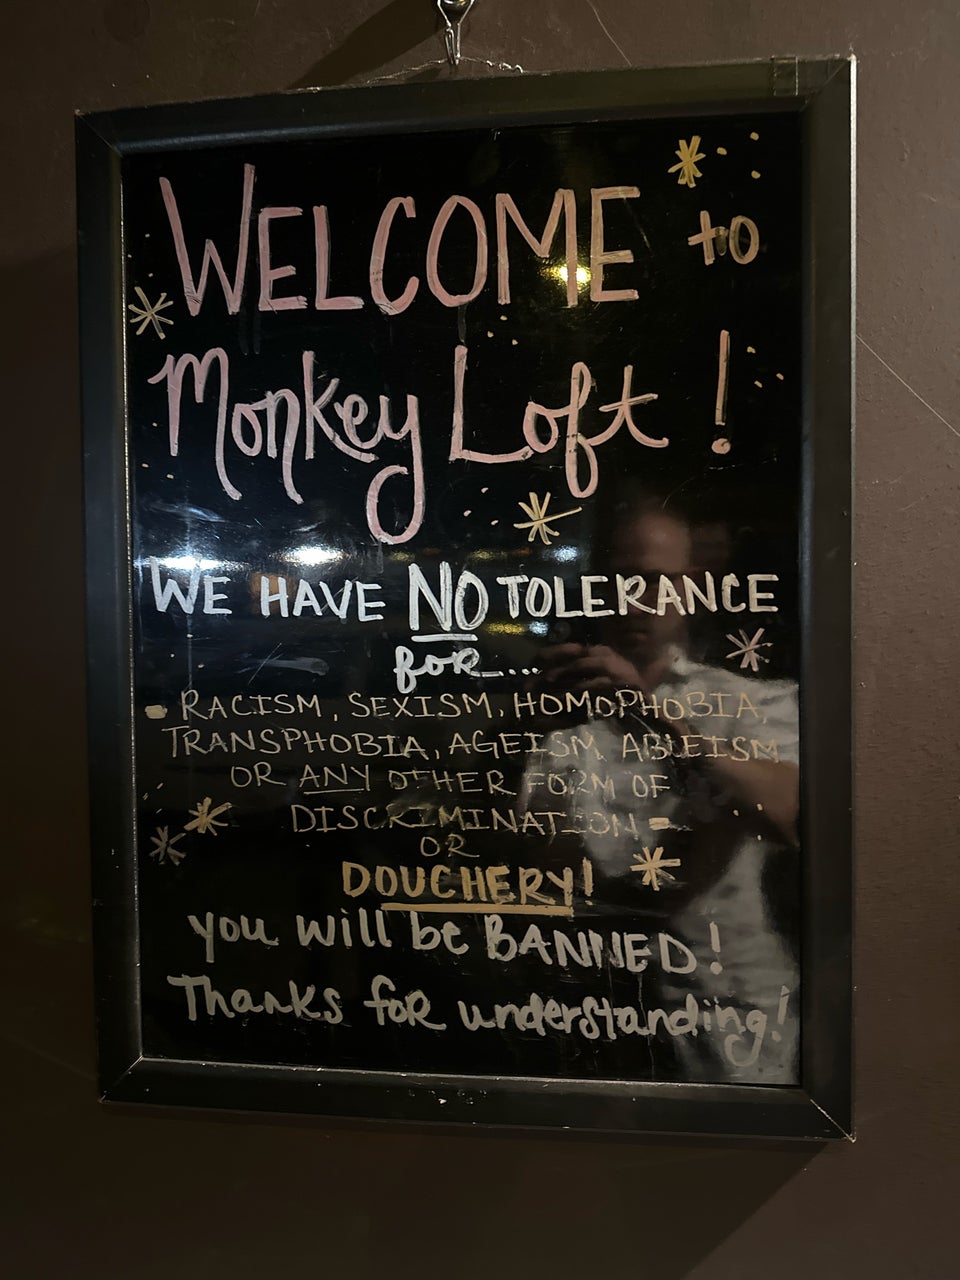 WELCOME to
Monkey Loft!
WE HAVE NO TOLERANCE
for...
RACISM, SEXISM, HOMOPHOBIA,
TRANSPHOBIA, AGEISM, ABLEISM
OR ANY OTHER FORM OF
DISCRIMINATION -
OR
DOUCHERY!
you will be BANNED!
Thanks for understanding!